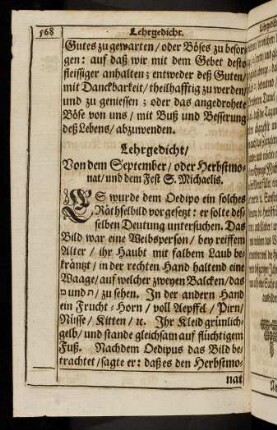 568 Lehrgedicht.
Gutes zu gewarten/ oder Böses zu besor-
gen: auf daß wir mit dem Gebet desto
fleissiger anhalten; entweder deß Guten/
mit Danckbarkeit/ theilhafftig zu werden/
und zu geniessen; oder das angedrohete
Böse von uns/ mit Buß und Besserung
deß Lebens/ abzuwenden.
Lehrgedicht/
Von dem September/ oder Herbstmo-
nat/ und dem Fest S. Michaelis.
ES wurde dem Oedipo ein solches
Räthselbild vorgesezt: er solte des-
selben Deutung untersuchen. Das
Bild war eine Weibsperson/ bey reiffem
Alter/ ihr Haubt mit falbem Laub be-
kräntzt/ in der rechten Hand haltend eine
Waage/ auf welcher zweyen Balcken/ das
und / zu sehen. In der andern Hand
ein Frucht-Horn/ voll Aepffel/ Pirn/
Nüsse/ Kitten/ ꝛc. Ihr Kleid grünlich-
gelb/ und stande gleichsam auf flüchtigem
Fuß. Nachdem Oedipus das Bild be-
trachtet/ sagte er: daß es den Herbstmo-
nat